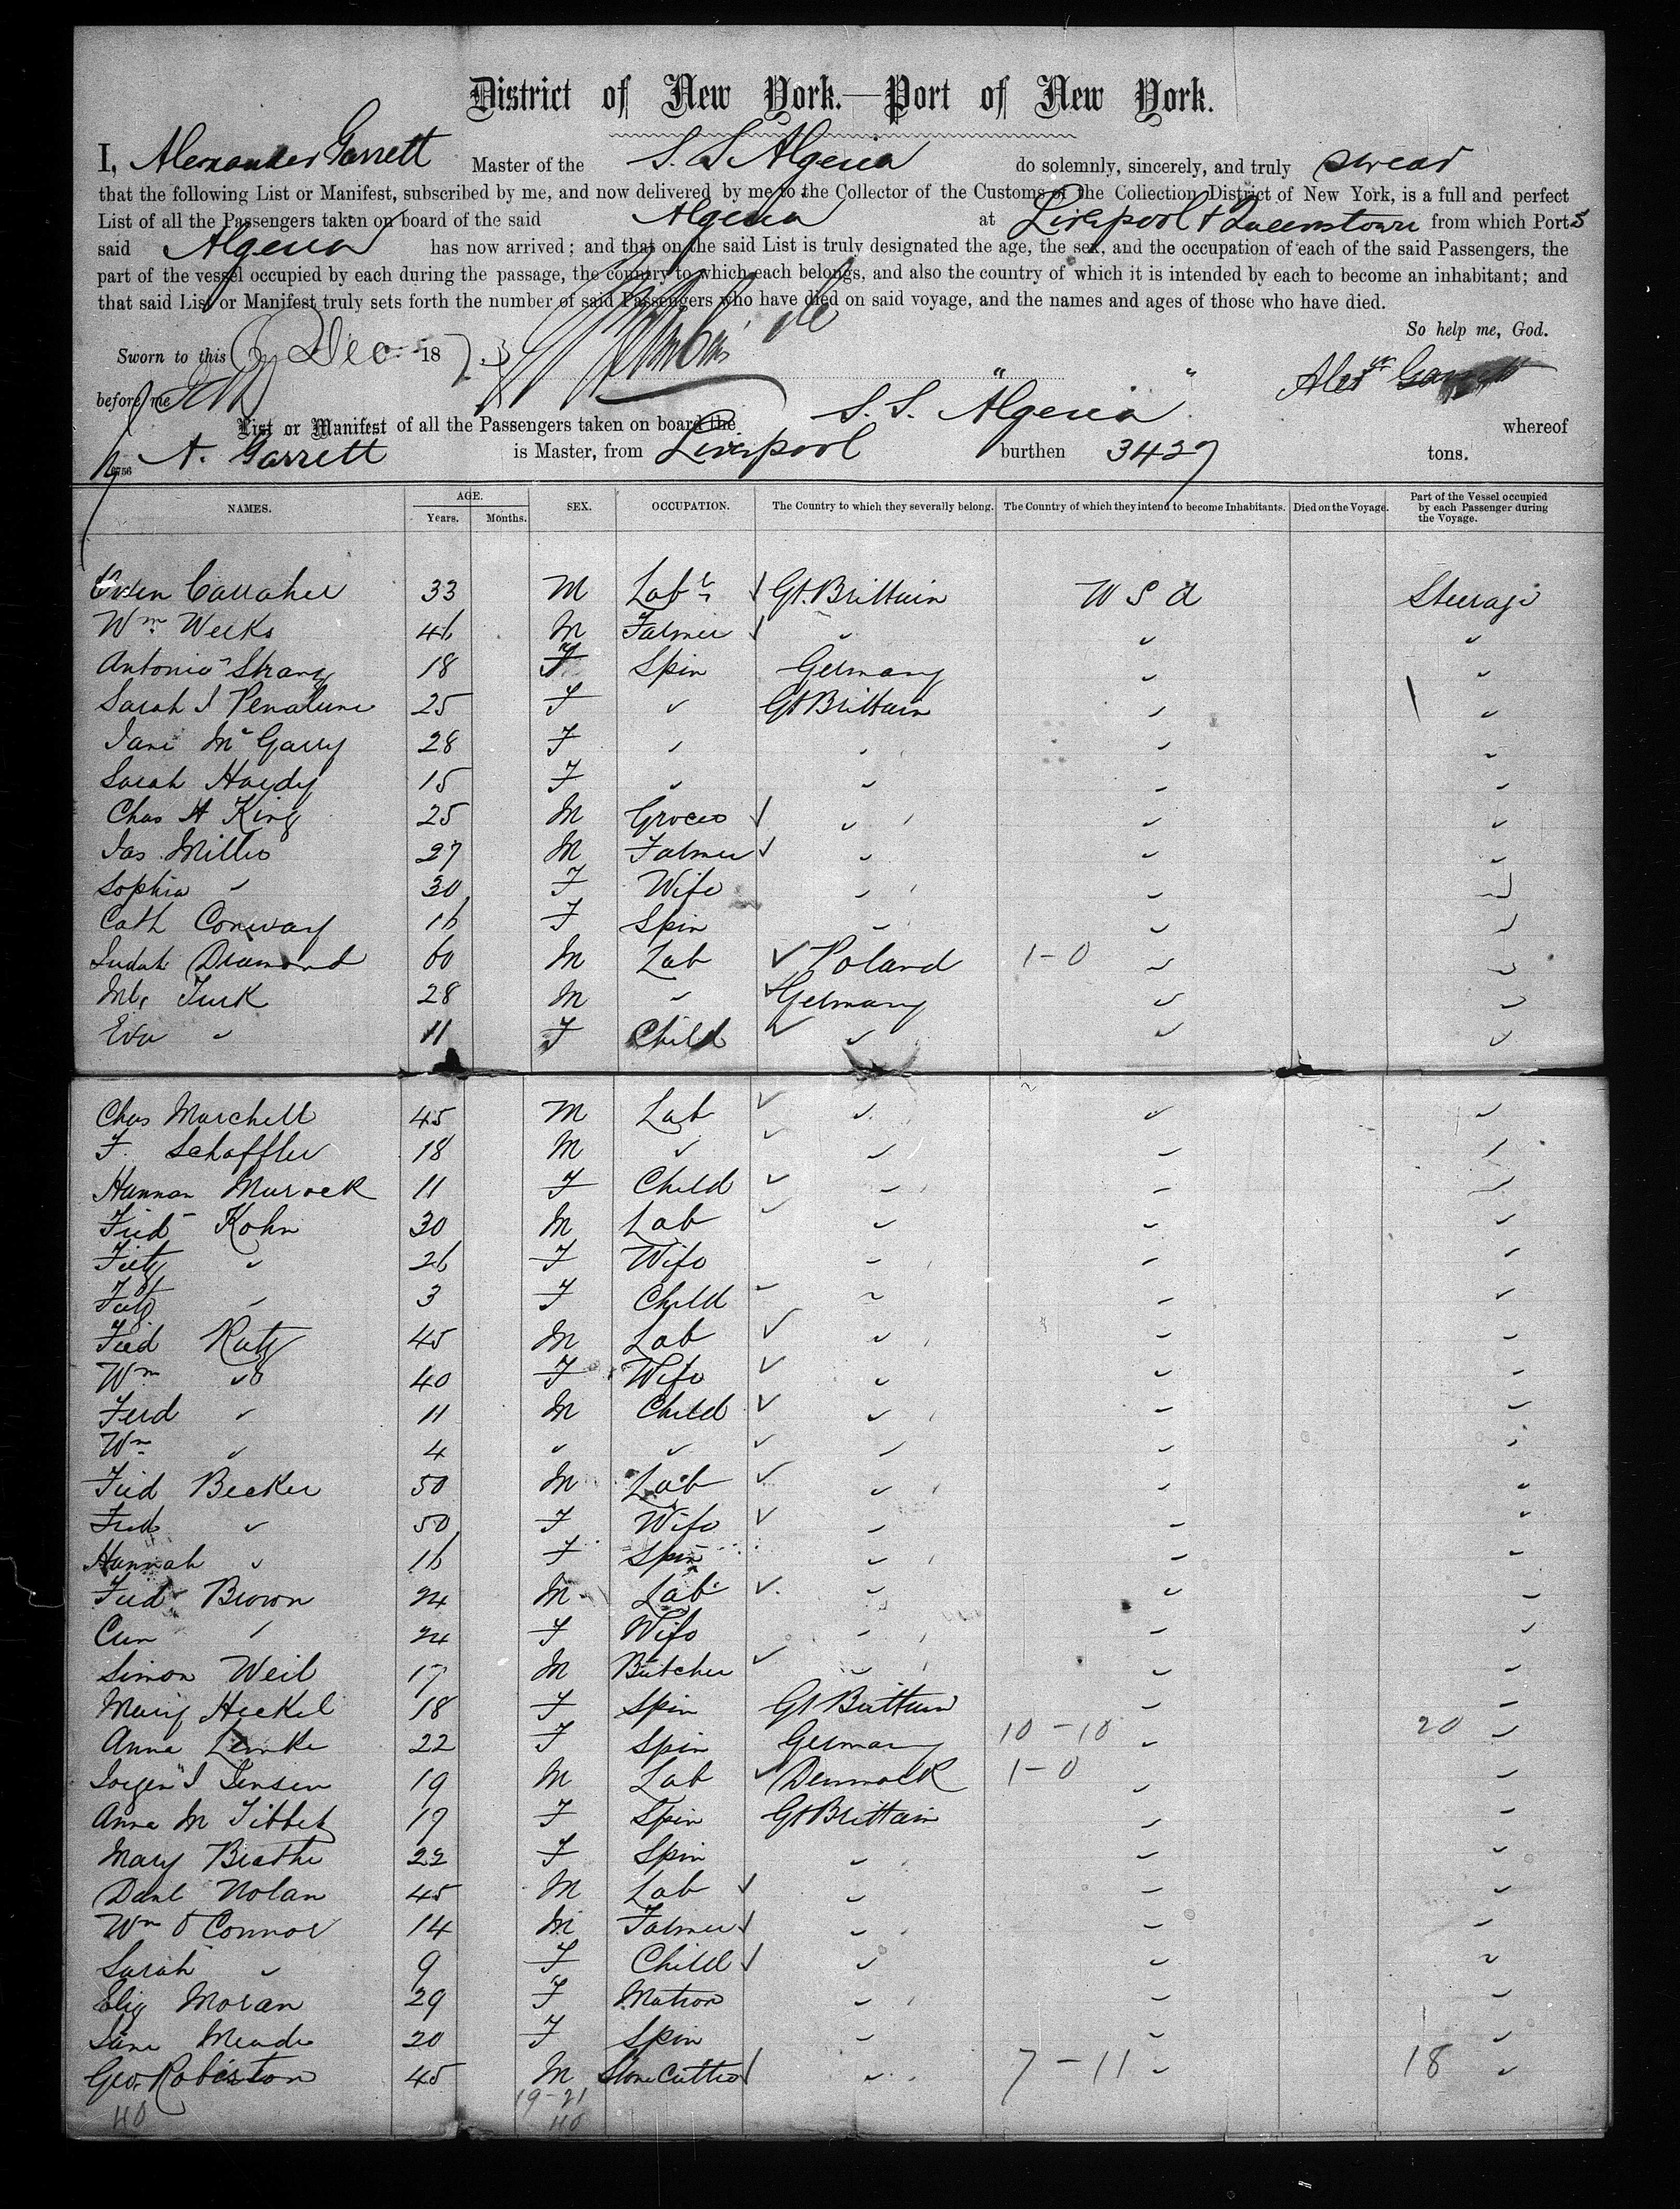 District of New York.—Port of New York.
I, Alexander Garrett Master of the S. S Algeria do solemnly, sincerely, and truly swear
that the following List or Manifest, subscribed by me, and now delivered by me to the Collector of the Customs of the Collection District of New York, is a full and perfect
List of all the Passengers taken on board of the said Algeria at Liverpool & Queenstown from which Ports
said Algeria has now arrived; and that on the said List is truly designated the age, the sex, and the occupation of each of the said Passengers, the
part of the vessel occupied by each during the passage, the country to which each belongs, and also the country of which it is intended by each to become an inhabitant; and
that said List or Manifest truly sets forth the number of said Passengers who have died on said voyage, and the names and ages of those who have died.
So help me, God.
Sworn to this 6 Dec 187
before me Alexr Garrett
List or Manifest of all the Passengers taken on board the S. S. "Algeria" whereof
A. Garrett is Master, from Liverpool burthen 3427 tons.
NAMES. AGE. Years. Months. SEX. OCCUPATION. The Country to which they severally belong. The Country of which they intend to become Inhabitants. Died on the Voyage. Part of the Vessel occupied by each Passenger during the Voyage.
Owen Carraher 33 M Labr Gt. Brittain U S A Steerage
Wm Weeks 46 M Farmer " " "
Antonio Strang 18 F Spin Germany " "
Sarah J Penalune 25 F " Gt Brittain " "
Jane McGarry 28 F " " " "
Sarah Hardy 15 F " " " "
Chas H King 25 M Grocer " " "
Jas Miller 27 M Farmer " " "
Sophia " 30 F Wife " " "
Cath Conway 16 F Spin " " "
Judah Diamond 60 M Lab Poland 1-0 " "
Turk 28 M " Germany " "
Eva " 11 F Child " " "
Chas Marchell 45 M Lab " " "
F. Schaffler 18 M " " " "
Hannan Murock 11 F Child " " "
Fred Kohn 30 M Lab " " "
" 26 F Wife " " "
" 3 F Child " " "
Fred Rutz 45 M Lab " " "
Wm " 40 F Wife " " "
Ferd " 11 M Child " " "
Wm " 4 " " " " "
Fred Becker 50 M Lab " " "
Fred " 50 F Wife " " "
Hannah " 16 F Spin " " "
Fred Brown 24 M Lab " " "
" 24 F Wife " " "
Simon Weil 17 M Butcher " " "
Mary Heckel 18 F Spin Gt Brittain " "
Anna Lemke 22 F Spin Germany 10-10 " 20 "
Jorgen J Jensen 19 M Lab Denmark 1-0 " "
Anna M Tibbet 17 F Spin Gt Brittain " "
Mary 22 F Spin " " "
Danl Nolan 45 M Lab " " "
Wm O Connor 14 M Farmer " " "
Sarah " 9 F Child " " "
Eliz Moran 29 F Matron " " "
Jane Meade 20 F Spin " " "
Geo. Roberton 45 M Stone Cutter " 7-11 " 18 "
40 19-21
40